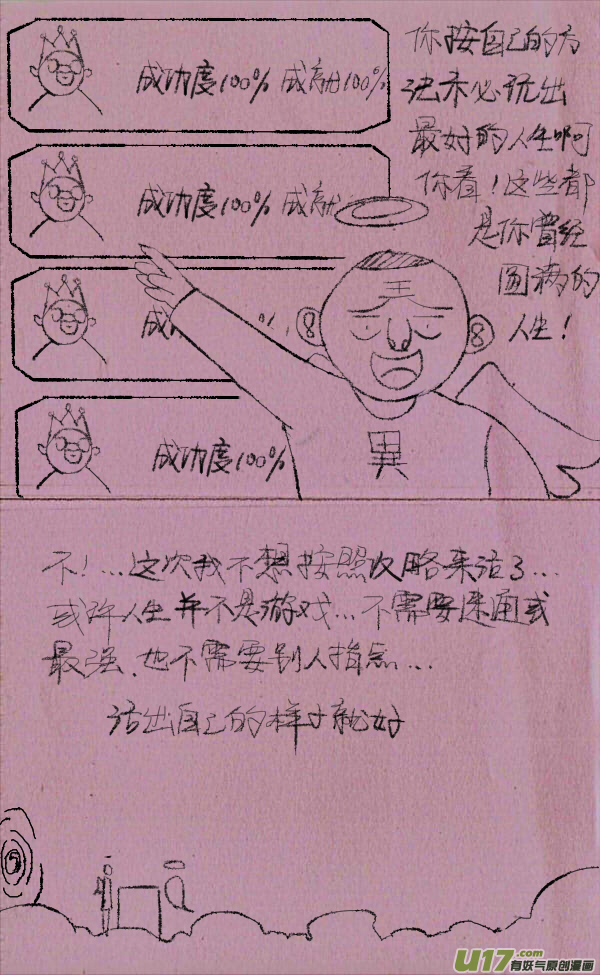 你按自己的方
法未必玩出
最好的人生啊
你看！这些都
是你曾经
圆满的
人生！
成功度100% 成就100%
成功度100% 成就
成
%
成功度100%
王
異
不！…这次我不想按照攻略来活了…
或许人生并不是游戏…不需要速通或
最强.也不需要别人指点…
活出自己的样子就好
U17.com
有妖气原创漫画